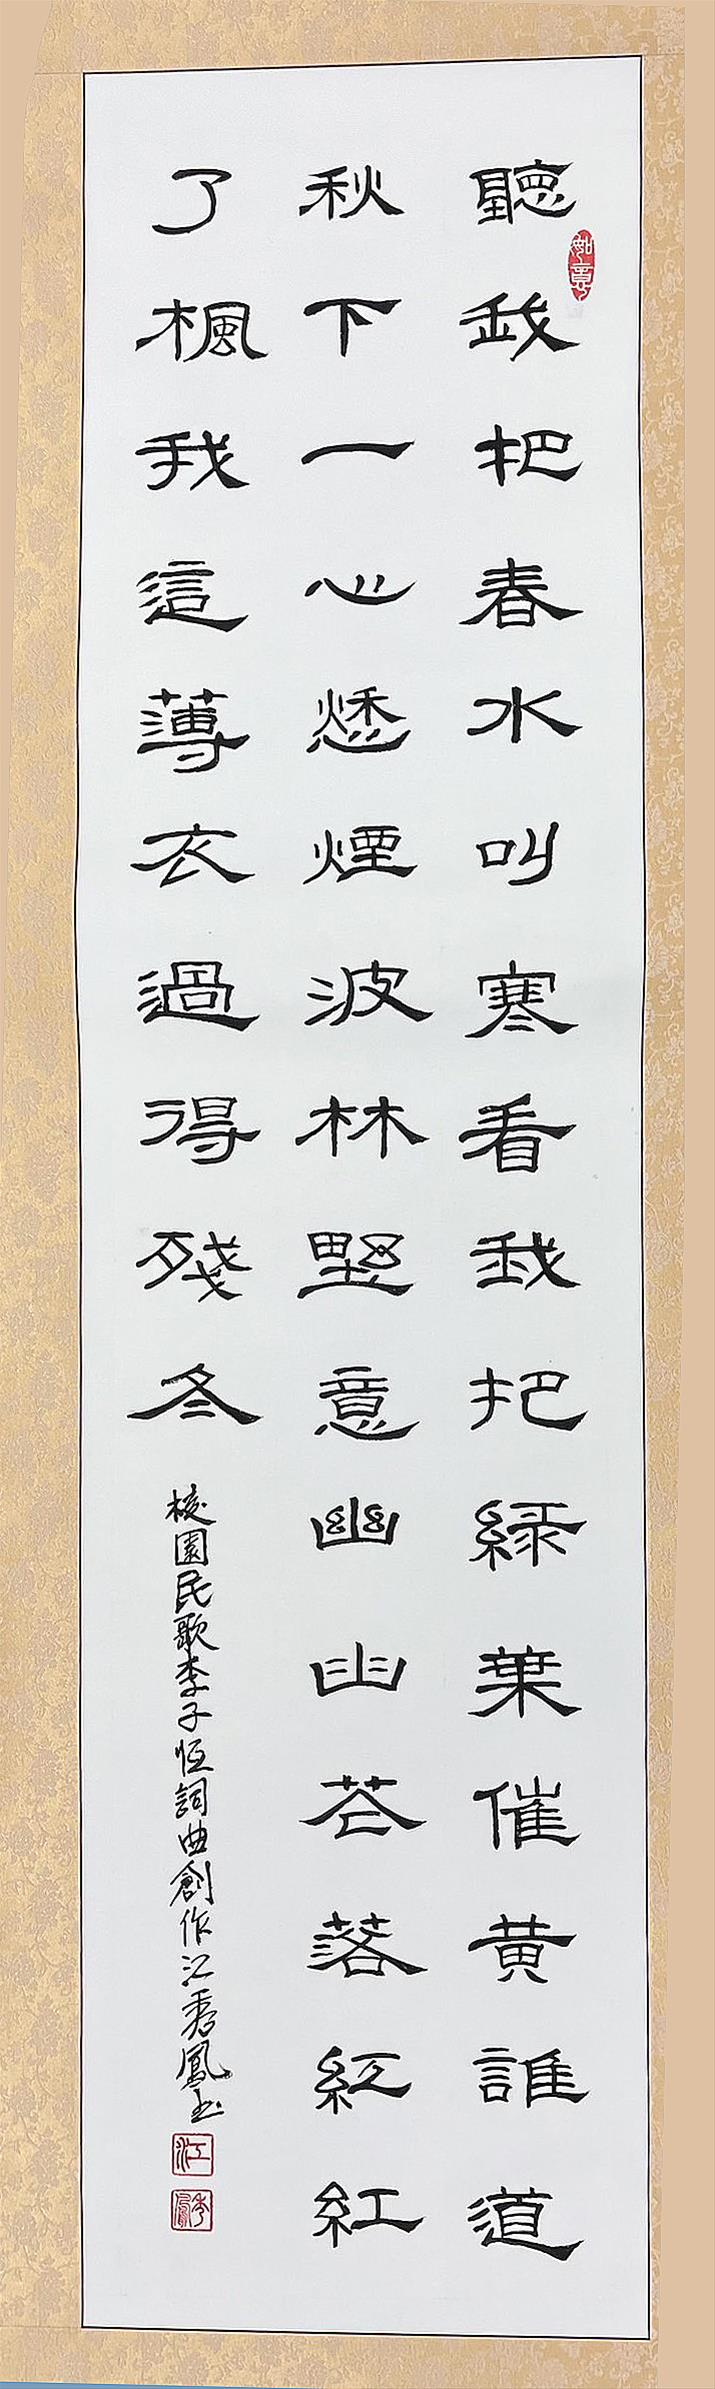 聽我把春水叫寒看我把綠葉催黃誰道
秋下一心愁煙波林野意幽幽花落紅紅
了楓我這薄衣過得殘冬
校園民歌李子恆詞曲創作江秀鳳書
如意
江
秀鳳